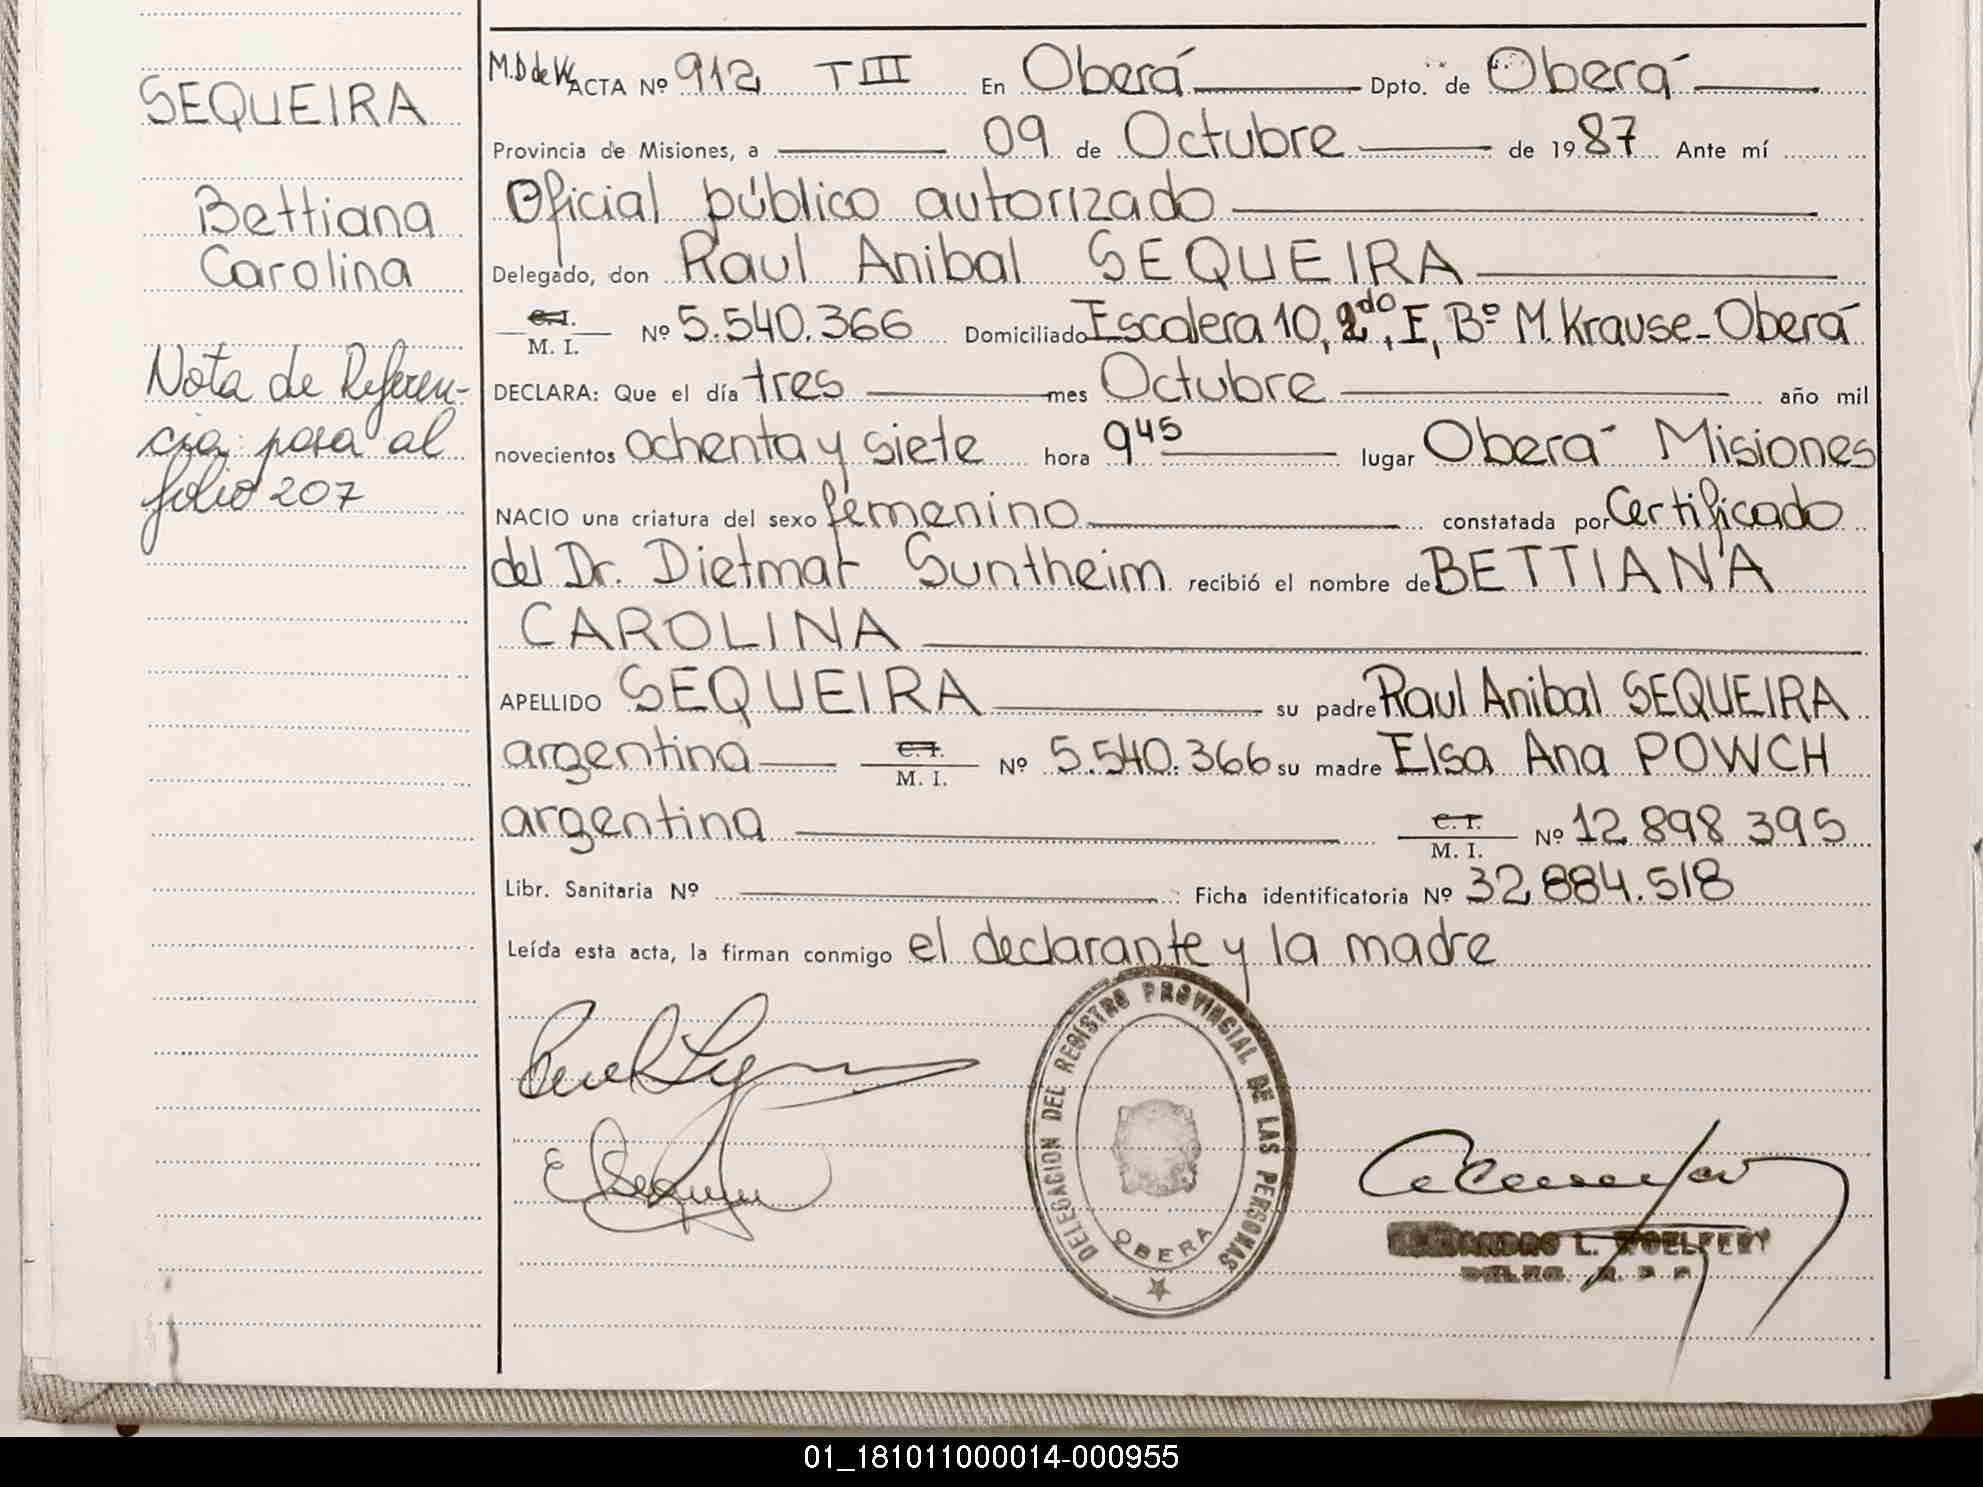 SEQUEIRA
Bettiana
Carolina
Nota de Referen-
cia pasa al
folio 207
M.D de W. ACTA Nº 912 T III En Oberá Dpto. de Oberá
Provincia de Misiones, a 09 de Octubre de 1987 Ante mí
Oficial público autorizado
Delegado, don Raul Anibal SEQUEIRA
C.I. M. I. Nº 5.540.366 Domiciliado Escalera 10, 2do, E, Bº M. Krause-Oberá
DECLARA: Que el día tres mes Octubre año mil
novecientos ochenta y siete hora 9 45 lugar Oberá Misiones
NACIO una criatura del sexo femenino constatada por Certificado
del Dr. Dietmar Suntheim recibió el nombre de BETTIANA
CAROLINA
APELLIDO SEQUEIRA su padre Raul Anibal SEQUEIRA
argentina C.I. M. I. Nº 5.540.366 su madre Elsa Ana POWCH
argentina C.I. M. I. Nº 12.898.395
Libr. Sanitaria Nº Ficha identificatoria Nº 32.884.518
Leída esta acta, la firman conmigo el declarante y la madre
DELEGACION DEL REGISTRO PROVINCIAL DE LAS PERSONAS
OBERA
L.
01_181011000014-000955